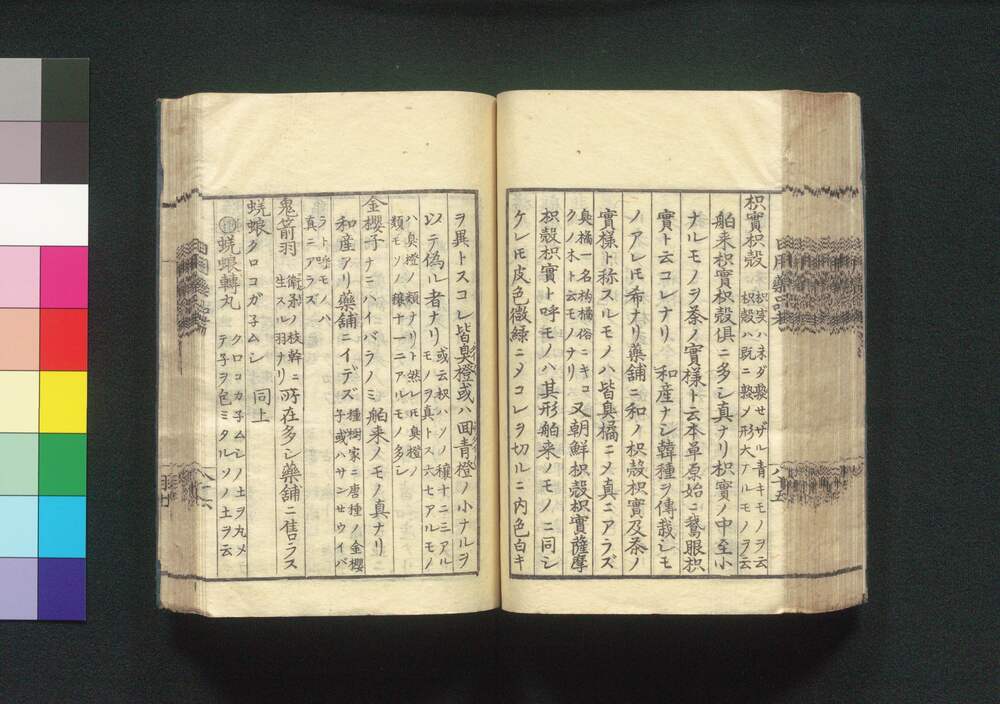 枳實枳殼
枳実ハネダ嫛セザル青キモノヲ云
枳殼ハ既ニ嫛〆形大アルモノヲ云
舶来枳實枳殼俱ニ多シ真ナリ枳實ノ中至小
ナルモノヲ茶ノ實様ト云本草原始ニ鵞眼枳
實ト云コレナリ 和産ナシ韓種ヲ傳栽シモ
ノアレ𪜈希ナリ藥舗ニ和ノ枳殼枳實及茶ノ
實様ト称スルモノハ皆臭橘ニ〆真ニアラズ
臭橘一名枸橘俗ニキコ
クノ木ト云モノナリ
又朝鮮枳殼枳實薩摩
枳殼枳實ト呼モノハ其形舶来ノモノニ同シ
ケレ𪜈皮色微緑ニ〆コレヲ切ルニ内色白キ
ヲ異トスコレ皆臭橙或ハ回青橙ノ小ナルヲ
以テ偽ル者ナリ
或云枳ハソノ穰十二三アル
モノヲ真トス六七アルモノ
ハ臭橙ノ類ナリト然レ𪜈臭橙ノ
類モソノ穰十一ニアルモノ多シ
金櫻子ナニハイバラノミ 舶来ノモノ真ナリ
和産アリ藥舗ニイデズ
種樹家ニ唐種ノ金櫻
子或ハサンセウイバ
ラト呼モノハ
真ニアラズ
鬼箭羽
衛矛ノ枝幹ニ
生スル羽ナリ
所在多シ藥舗ニ售ラス
蜣蜋クロコガ子ムシ 同上
附蜣蜋轉丸
クロコカ子ムシノ土ヲ丸メ
テ子ヲ包ミタルソノ土ヲ云